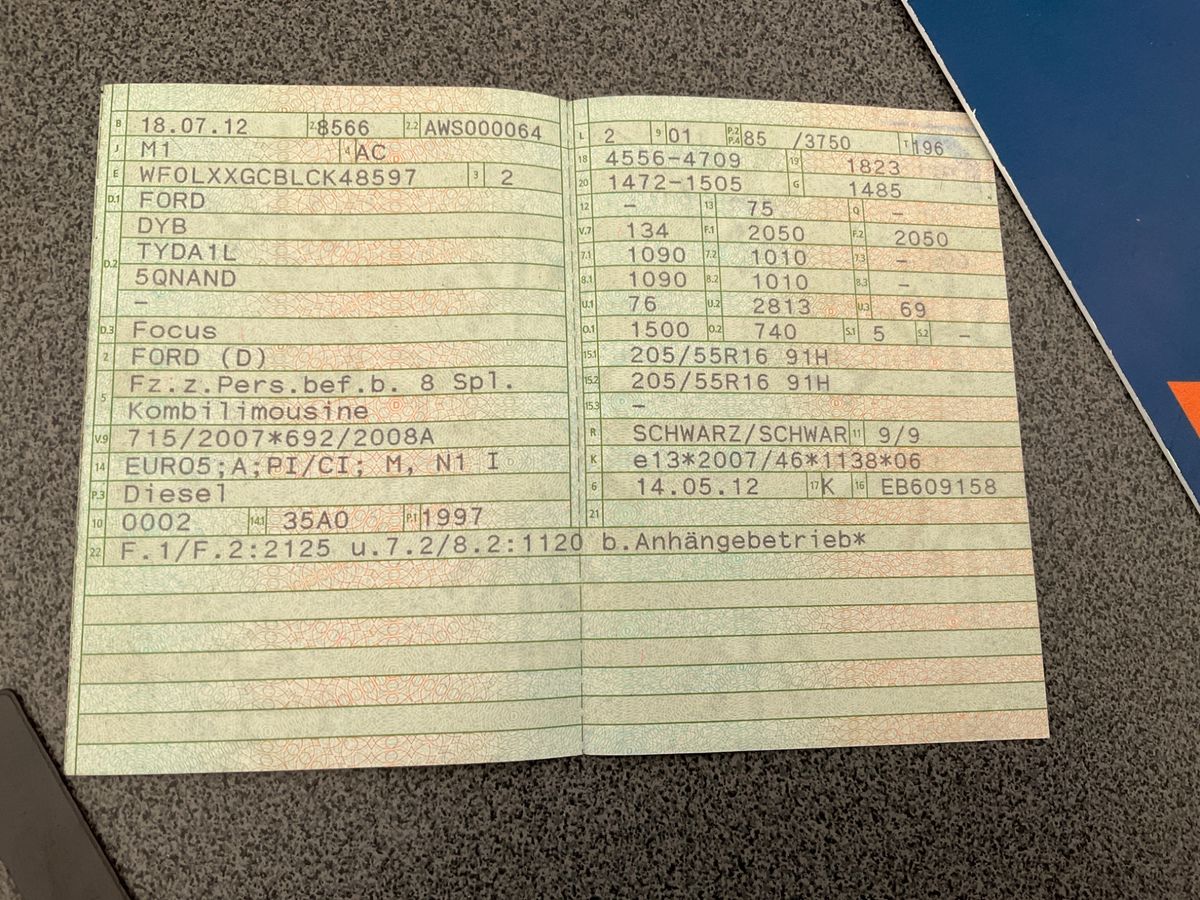 B 18.07.12 2.1 8566 2.2 AWS000064
J M1 4 AC
E WF0LXXGCBLCK48597 3 2
D.1 FORD
DYB
D.2 TYDA1L
5QNAND
–
D.3 Focus
2 FORD (D)
5 Fz.z.Pers.bef.b. 8 Spl.
Kombilimousine
V.9 715/2007*692/2008A
14 EURO5;A;PI/CI; M, N1 I
P.3 Diesel
10 0002 14.1 35A0 P.1 1997
L 2 9 01 P.2 P.4 85 /3750 T 196
18 4556-4709 19 1823
20 1472-1505 G 1485
12 – 13 75 Q –
V.7 134 F.1 2050 F.2 2050
7.1 1090 7.2 1010 7.3 –
8.1 1090 8.2 1010 8.3 –
U.1 76 U.2 2813 U.3 69
O.1 1500 O.2 740 S.1 5 S.2 –
15.1 205/55R16 91H
15.2 205/55R16 91H
15.3 –
R SCHWARZ/SCHWAR 11 9/9
K e13*2007/46*1138*06
6 14.05.12 17 K 16 EB609158
21
22 F.1/F.2:2125 u.7.2/8.2:1120 b.Anhängebetrieb*